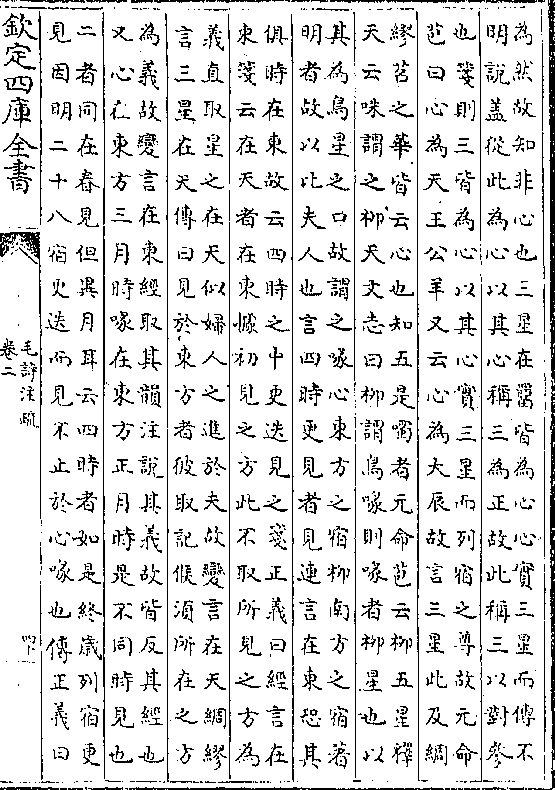 為然故知非心也三星在罶皆為心心實三星而傳不
明說蓋從此為心以其心稱三為正故此稱三以對參
也箋則三皆為心以其心實三星而列宿之尊故元命
苞曰心為天王公羊又云心為大辰故言三星此及綢
繆苕之華皆云心也知五是噣者元命苞云柳五星釋
天云咮謂之柳天文志曰柳謂鳥喙則喙者柳星也以
其為鳥星之口故謂之喙心東方之宿柳南方之宿著
明者故以比夫人也言四時更見者見連言在東恐其
俱時在東故云四時之中更迭見之箋正義曰經言在
東箋云在天者在東據初見之方此不取所見之方為
義直取星之在天似婦人之進於夫故變言在天綢繆
言三星在天傳曰見於東方者彼取記候須所在之方
為義故變言在東經取其韻注說其義故皆反其經也
又心在東方三月時喙在東方正月時是不同時見也
二者同在春見但異月耳云四時者如是終歲列宿更
見因明二十八宿更迭而見不止於心喙也傳正義曰
欽定四庫全書
毛詩注疏
卷二